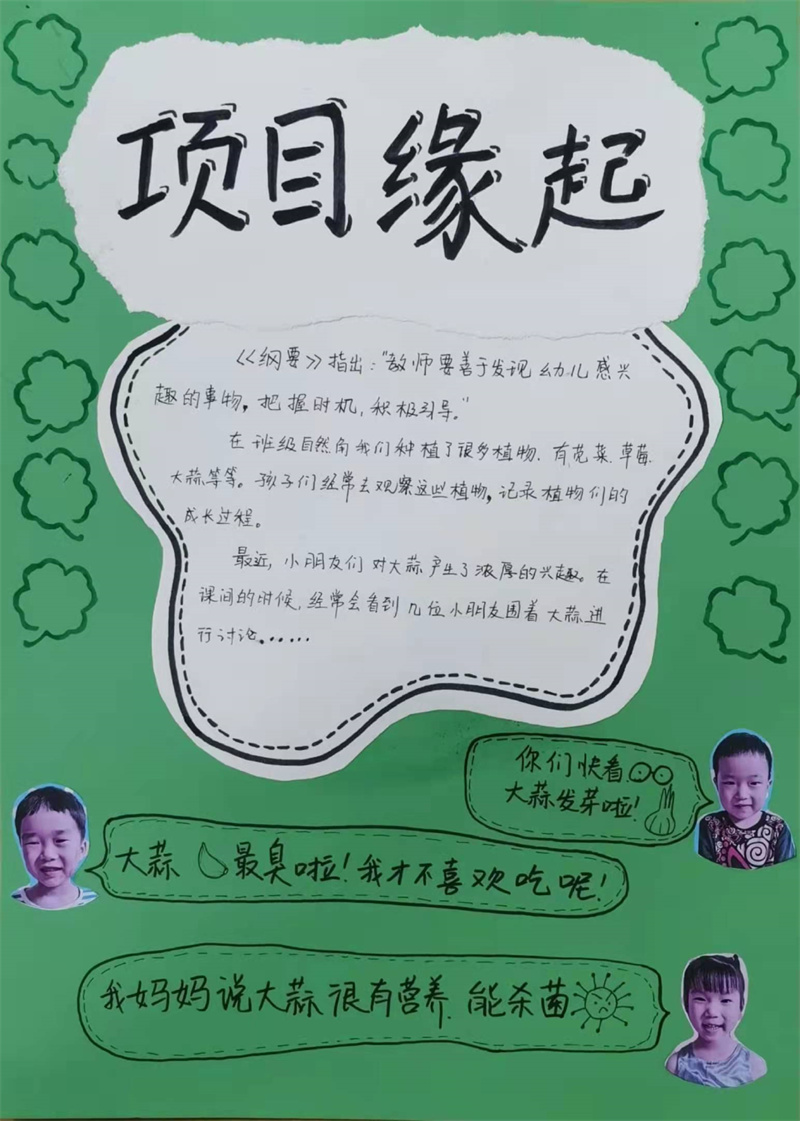 项目缘起
《纲要》指出:“教师要善于发现幼儿感兴
趣的事物,把握时机,积极引导。”
在班级自然角我们种植了很多植物、有苋菜、草莓、
大蒜等等。孩子们经常去观察这些植物,记录植物们的
成长过程。
最近,小朋友们对大蒜产生了浓厚的兴趣。在
课间的时候,经常会看到几位小朋友围着大蒜进
行讨论......
你们快看
大蒜发芽啦!
大蒜最臭啦!我才不喜欢吃呢!
我妈妈说大蒜很有营养、能杀菌